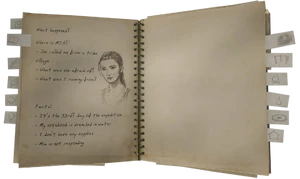 What happened?
Where is M?
- She called me from a tribe
village
- What was she afraid of?
- What was I running from?
Facts:
- It's the 53rd day of the expedition
- My notebook is drenched in water
- I don't have any supplies
- Mia is not responding